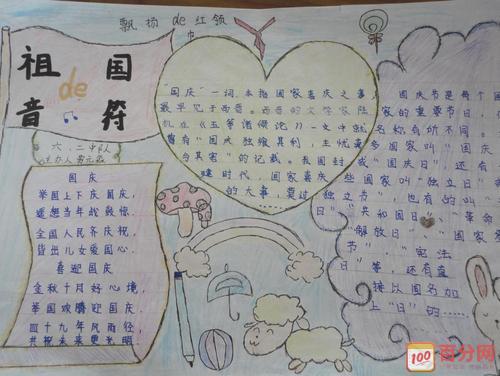 飘扬de红领巾
祖国
de
音符
六、二中队
国庆
举国上下庆国庆,
遥想当年战鼓惊.
全国人民齐庆祝,
皆出儿女爱国心.
喜迎国庆
金秋十月好心境,
举国欢腾迎国庆.
四十九年风雨径,
共祝未来更光明
"国庆"一词,本指国家喜庆之事,
最早见于西晋。西晋的文学家陆
机在《五等诸侯论》一文中就
曾有"国庆独飨其利,主忧莫
与其害"的记载。我国封
建时代,国家喜庆
的大事,莫过
国庆节是每个国
家的重要节日,
名称有所不同。
多国家叫"国庆
或"国庆日",还有
些国家叫"独立日"
"独立节",也有的叫
日""共和国日"、"革命
"解放日"、"国家
节""宪法
日"等,还有直
接以国名加
上"日"的……
100
百分网